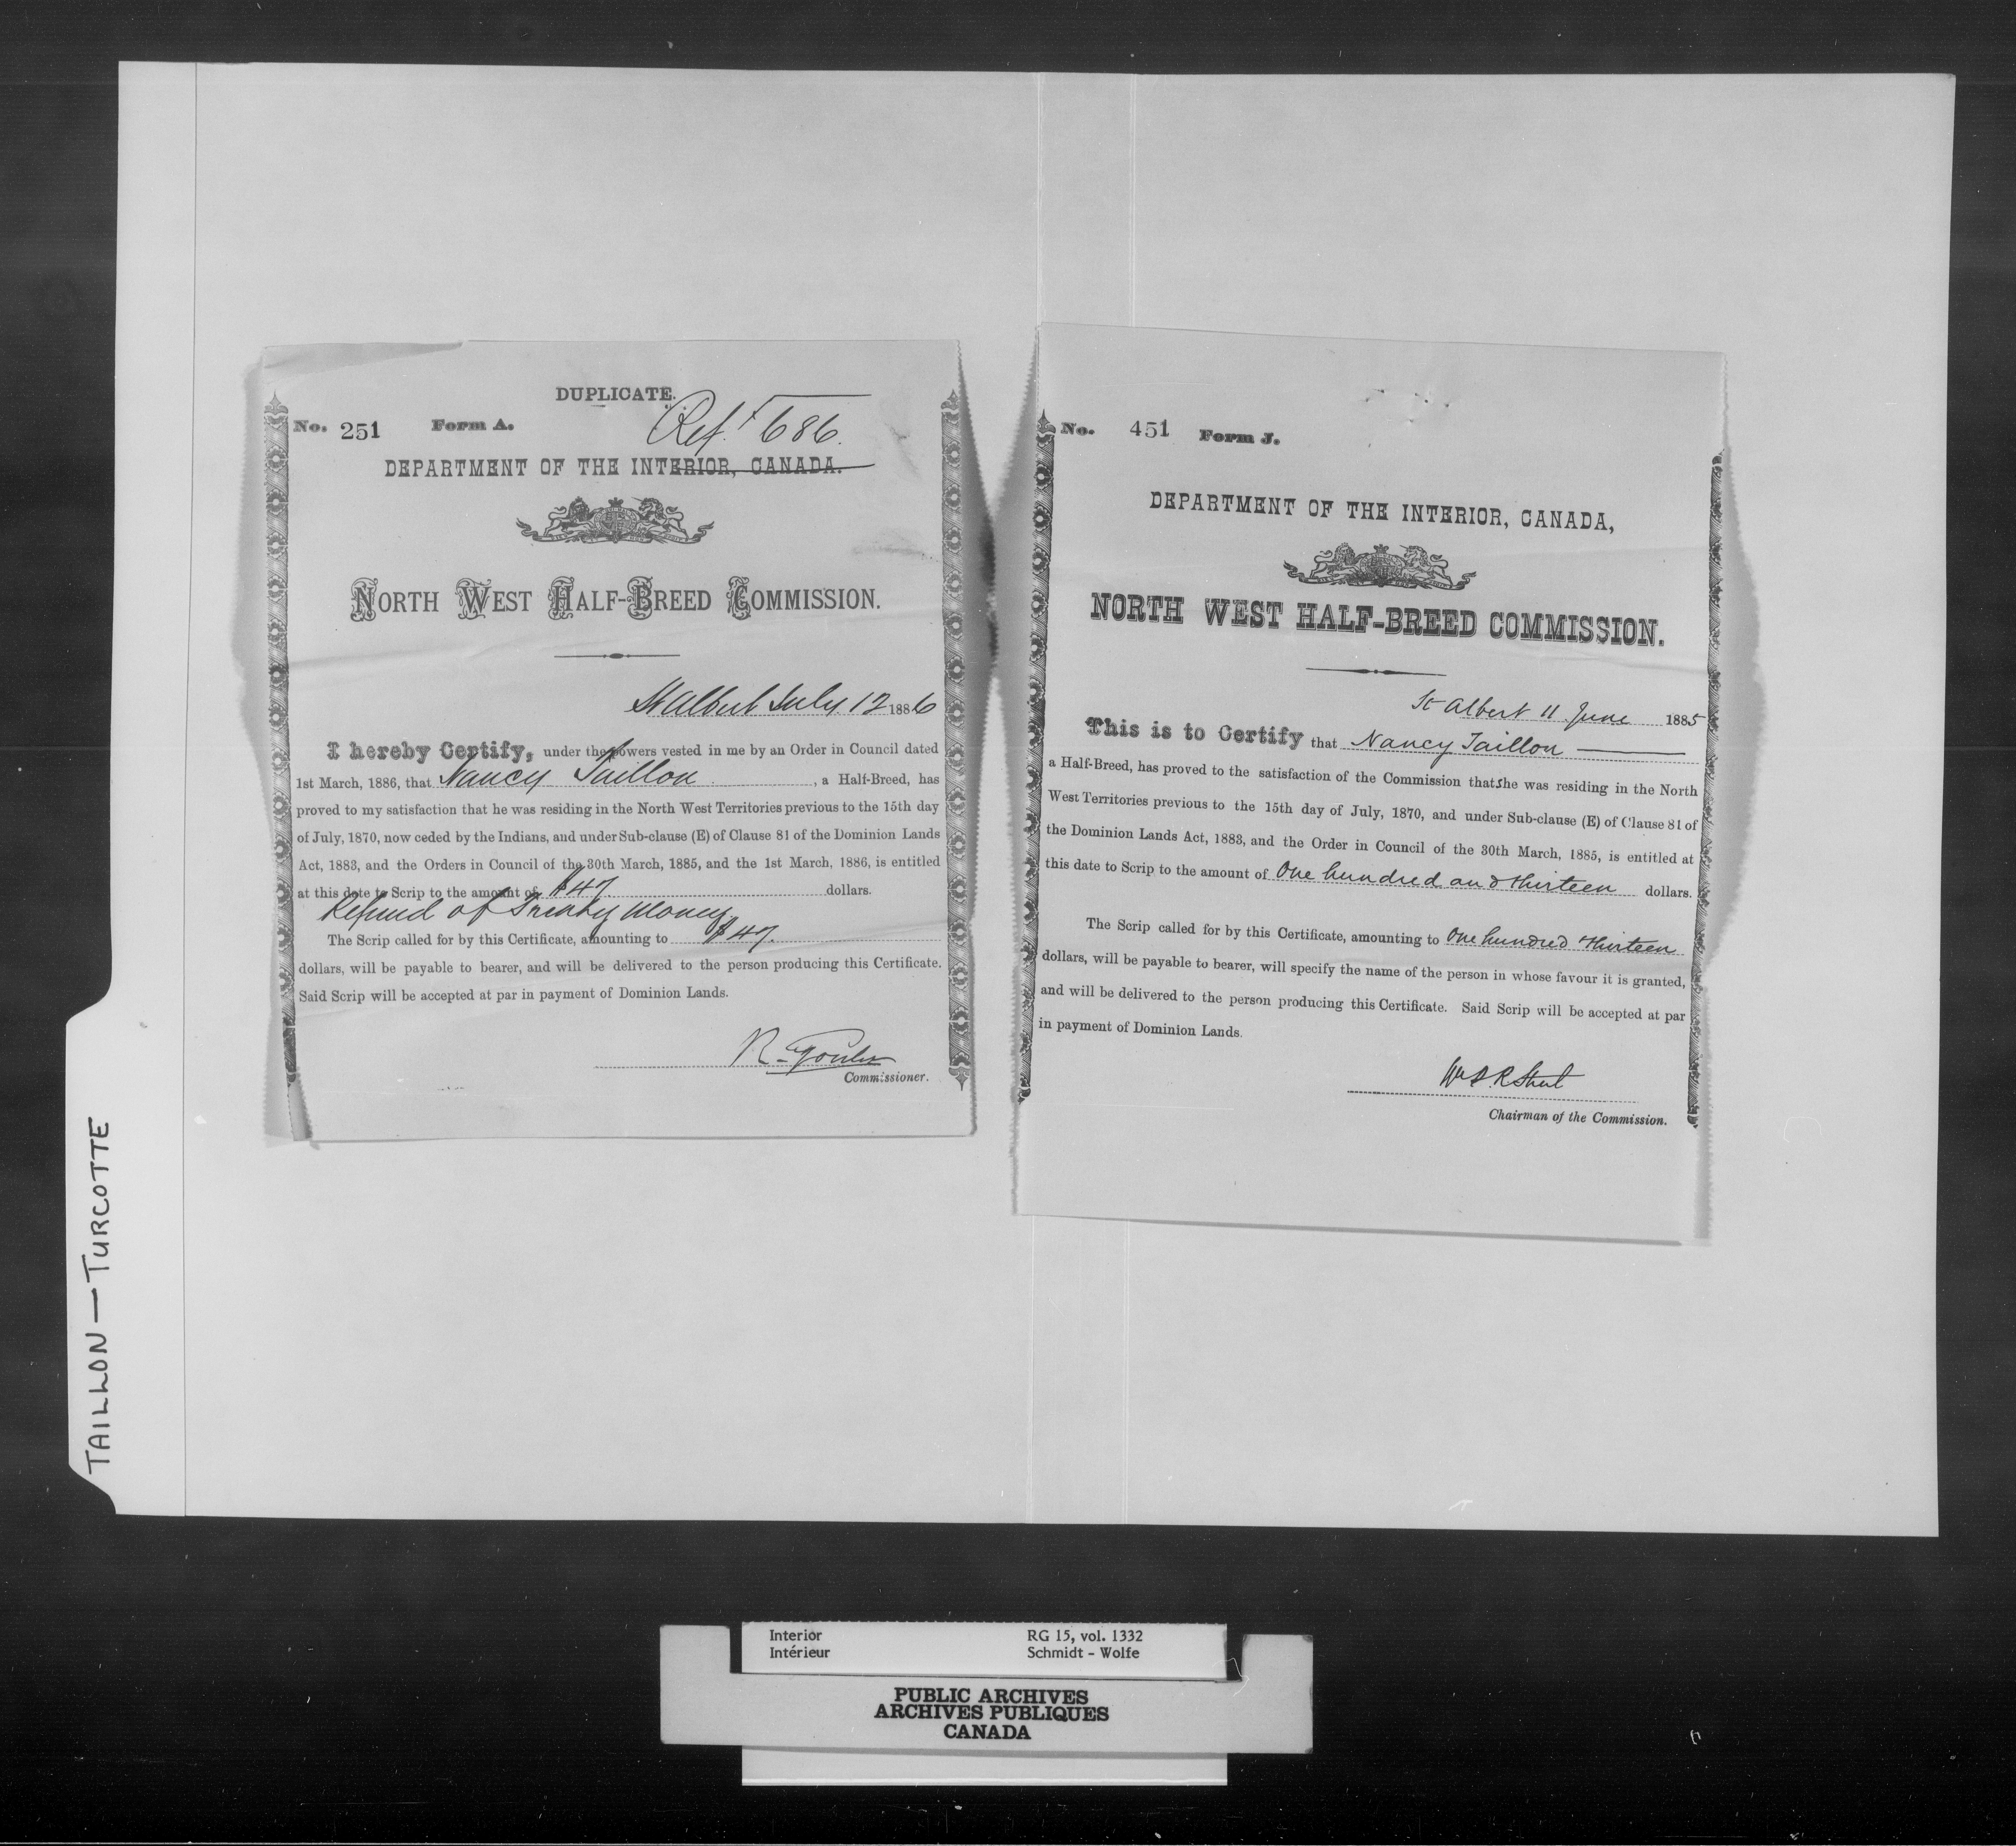 DUPLICATE.
Ref. F 686.
No. 251 Form A.
DEPARTMENT OF THE INTERIOR, CANADA.
NORTH WEST HALF-BREED COMMISSION.
St Albert July 12 1886
I hereby Certify, under the powers vested in me by an Order in Council dated
1st March, 1886, that Nancy Taillon , a Half-Breed, has
proved to my satisfaction that he was residing in the North West Territories previous to the 15th day
of July, 1870, now ceded by the Indians, and under Sub-clause (E) of Clause 81 of the Dominion Lands
Act, 1883, and the Orders in Council of the 30th March, 1885, and the 1st March, 1886, is entitled
at this date to Scrip to the amount of $47. dollars.
Refund of Treaty Money
The Scrip called for by this Certificate, amounting to $47.
dollars, will be payable to bearer, and will be delivered to the person producing this Certificate.
Said Scrip will be accepted at par in payment of Dominion Lands.
R. Goulet
Commissioner.
No. 451 Form J.
DEPARTMENT OF THE INTERIOR, CANADA,
NORTH WEST HALF-BREED COMMISSION.
St Albert 11 June 1885
This is to Certify that Nancy Taillon
a Half-Breed, has proved to the satisfaction of the Commission that she was residing in the North
West Territories previous to the 15th day of July, 1870, and under Sub-clause (E) of Clause 81 of
the Dominion Lands Act, 1883, and the Order in Council of the 30th March, 1885, is entitled at
this date to Scrip to the amount of One hundred and thirteen dollars.
The Scrip called for by this Certificate, amounting to One hundred thirteen
dollars, will be payable to bearer, will specify the name of the person in whose favour it is granted,
and will be delivered to the person producing this Certificate. Said Scrip will be accepted at par
in payment of Dominion Lands.
Wm P. R. Street
Chairman of the Commission.
TAILLON — TURCOTTE
Interior RG 15, vol. 1332
Intérieur Schmidt - Wolfe
PUBLIC ARCHIVES
ARCHIVES PUBLIQUES
CANADA